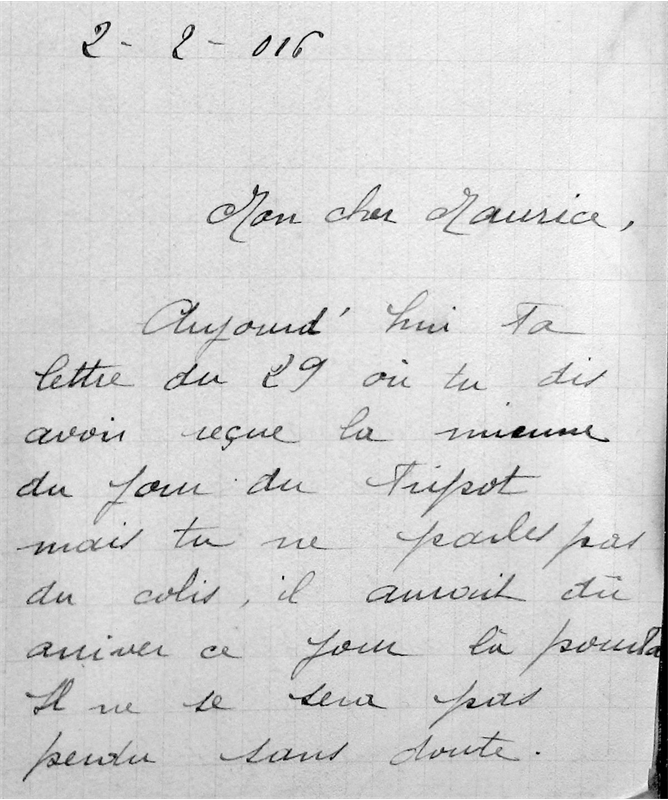 2 - 2 - 016
Mon cher Maurice,
Aujourd' hui ta
lettre du 29 où tu dis
avoir reçue la mienne
du jour du Tripot
mais tu ne parles pas
du colis, il aurait dû
arriver ce jour là pourta
Il ne se sera pas
perdu sans doute.